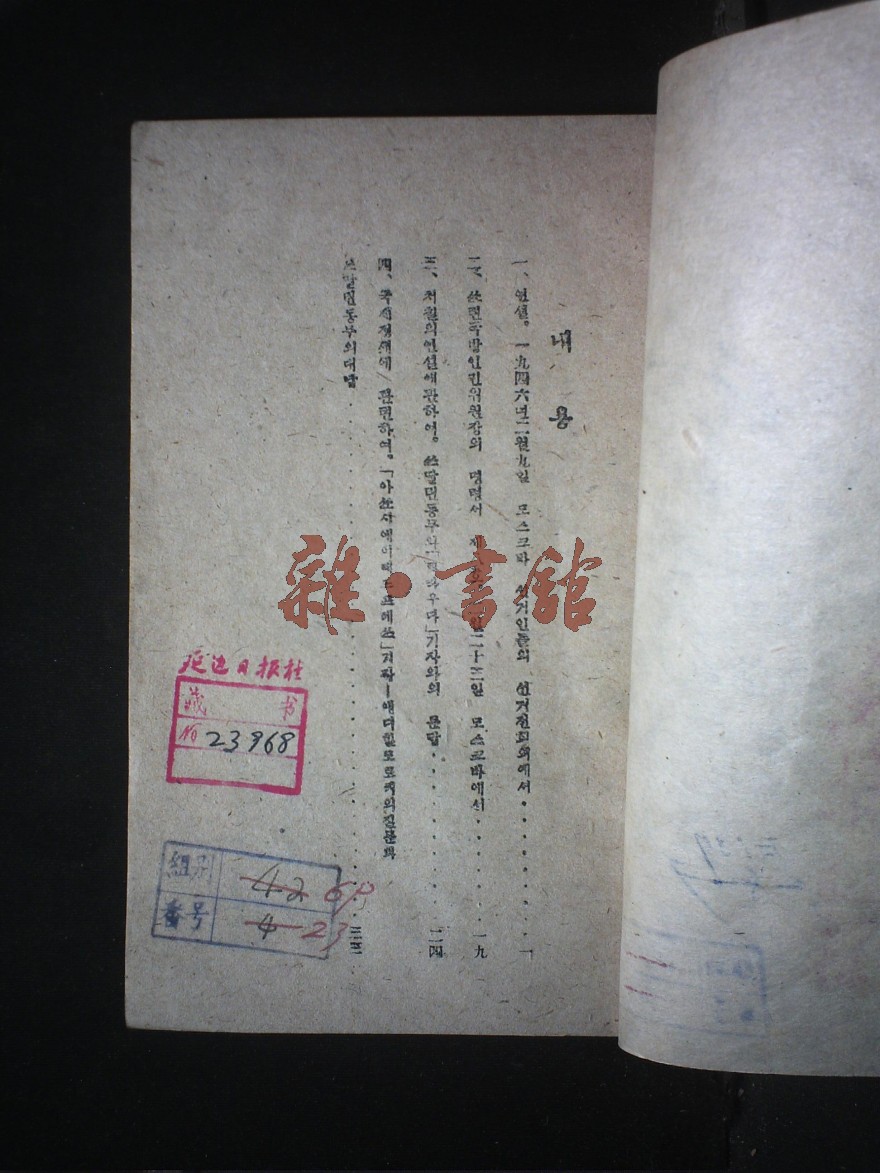 내용
一、연설。一九四六년二월九일 모스크바 선거인들의 선거전회의에서 一
二、쏘련국방인민위원장의 명령서 二十三일 모스크바에서 一九
三、처칠의연설에관하여。쓰딸린동무와 기자와의 문답 二四
四、국제정세에 관련하여。「아쏘시에이떼드프레쓰」기자—에디 의질문과
쓰딸린동무의대답 三三
雜·書館
延边日报社
藏书
№ 23968
組别 42 69
番号 4 23